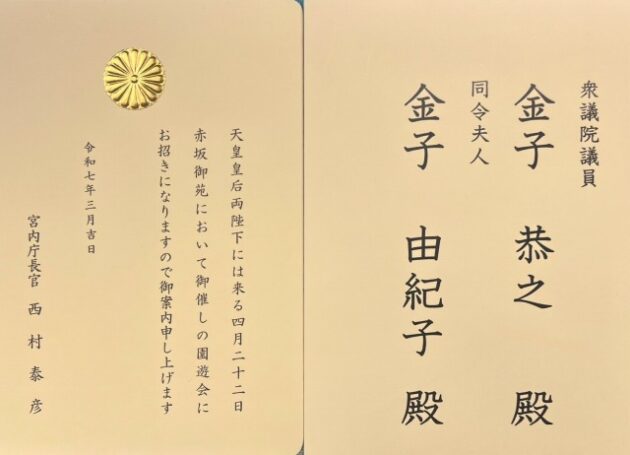 衆議院議員
金子 恭之 殿
同令夫人
金子 由紀子 殿
天皇皇后両陛下には来る四月二十二日
赤坂御苑において御催しの園遊会に
お招きになりますので御案内申し上げます
令和七年三月吉日
宮内庁長官 西村泰彦